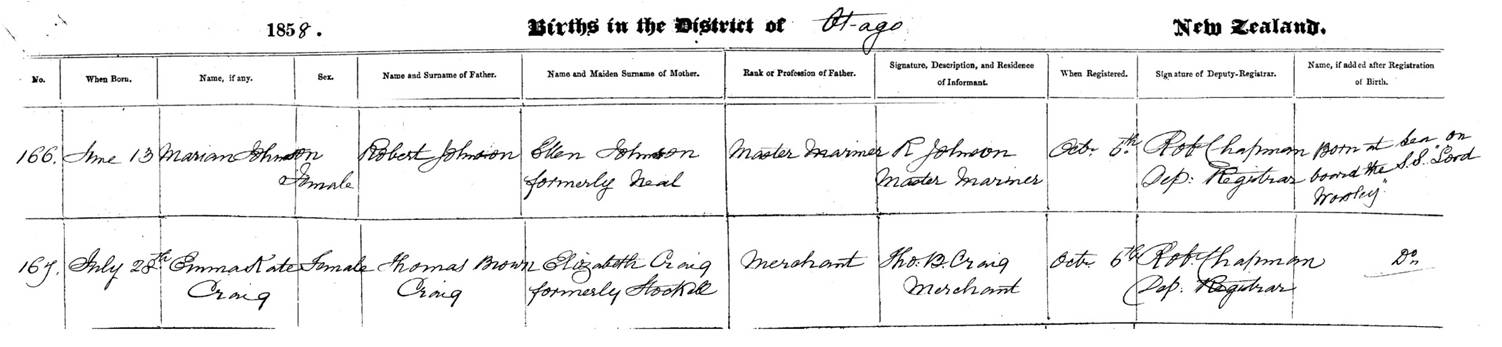 1858. Births in the District of Otago New Zealand.
No. When Born. Name, if any. Sex. Name and Surname of Father. Name and Maiden Surname of Mother. Rank or Profession of Father. Signature, Description, and Residence of Informant. When Registered. Signature of Deputy-Registrar. Name, if added after Registration of Birth.
166. June 13 Marian Johnson Female Robert Johnson Ellen Johnson formerly Neal Master Mariner R Johnson Master Mariner Octr. 5th. Rob. Chapman Dep: Registrar Born at Sea on board the S.S. "Lord Worsley"
167. July 28th Emma Kate Craig Female Thomas Brown Craig Elizabeth Craig formerly Merchant Tho. B. Craig Merchant Octr. 6th Rob. Chapman Dep: Registrar Do